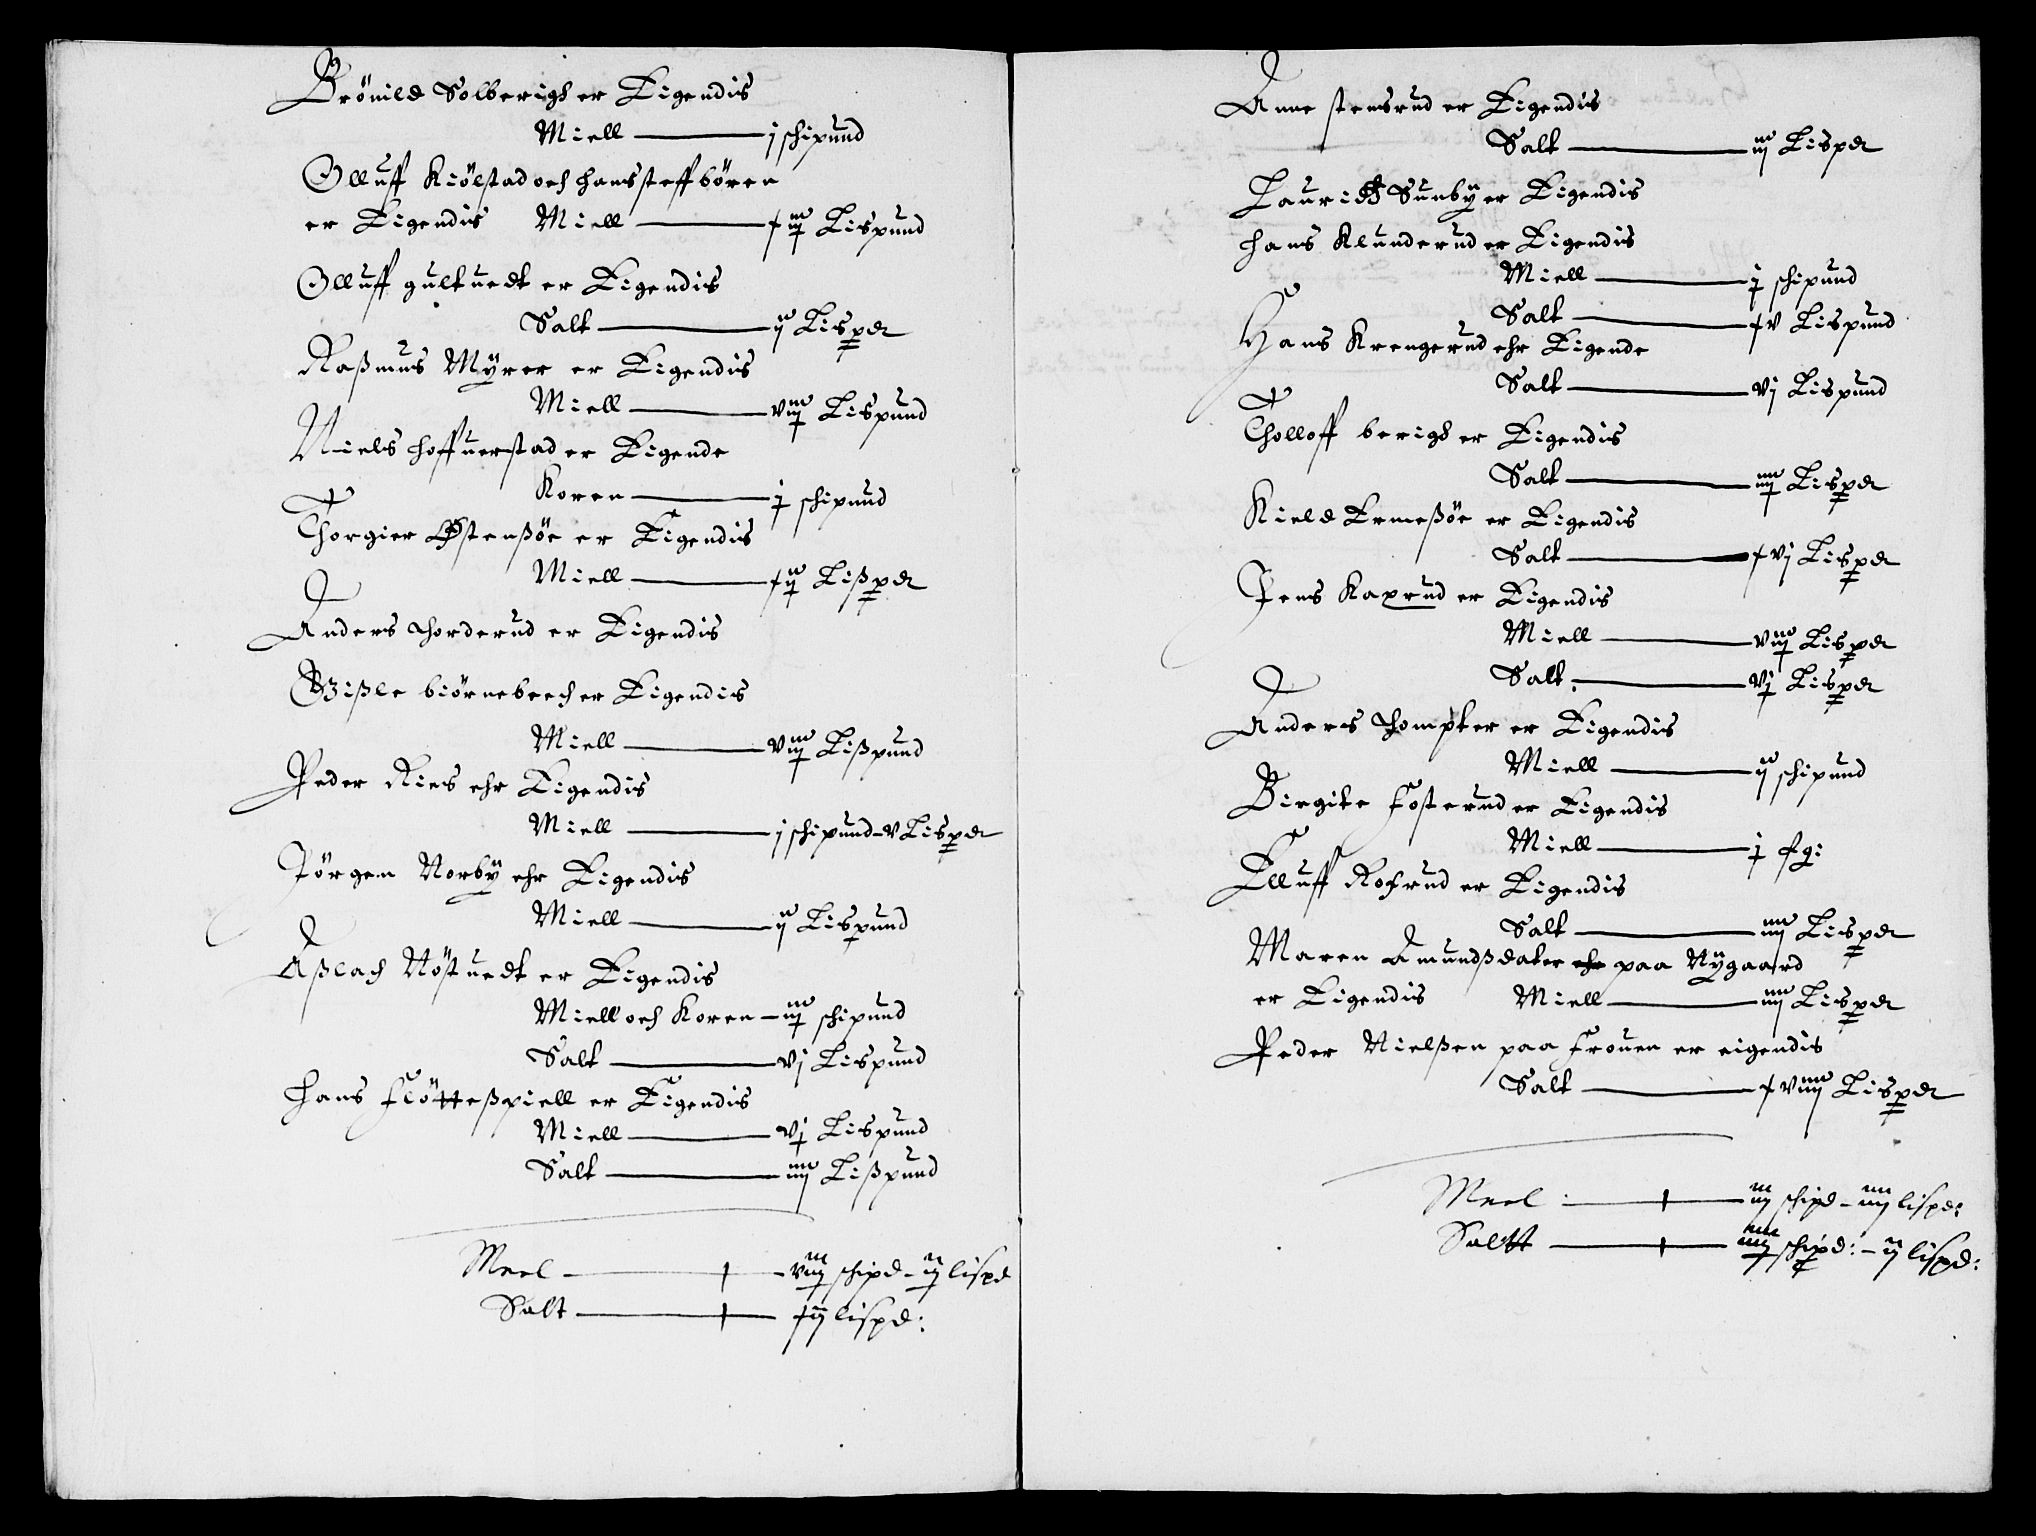 Brönild Solberigh er Eigendis
Miell — j schipund
Olluff Kiölstad och hans steffbören
er Eigendis Miell — Lispund
Olluff gultuedt er Eigendis
Salt — ij Lispd
Raßmus Myrer er Eigendis
Miell — viij Lispund
Niels hoffuerstad er Eigende
Koren — j schipund
Thorgier Østensöe er Eigendis
Miell — Lißpd
Anders thorderud er Eigendis
Gißle biörnebech er Eigendis
Miell — viij Lißpund
Peder Ries ehr Eigendis
Miell — j schipund - v Lispd
Jörgem Norbÿ ehr Eigendis
Miell — ij Lispund
Aßlach Nöstuedt er Eigendis
Miell och Koren — iij schipund
Salt — vj Lispund
hans Flötteßpiell er Eigendis
Miell — vj Lispund
Salt — iiij Lißpund
Meel — viij schipd - ij lispd
Salt — lispd:
Anne stensrud er Eigendis
Salt — iij Lispd
Laurids Sunbÿ er Eigendis
hans Klunderud er Eigendis
Miell — j schipund
Salt — xv Lispund
Hans Krengerud ehr Eigende
Salt — vj Lispund
Tholloff berigh er Eigendis
Salt — iiij Lispd
Kield Ermeßöe er Eigendis
Salt — xvj Lispd
Jens Kaxrud er Eigendis
Miell — viij Lispd
Salt — vj Lispd
Anders thompter er Eigendis
Miell — ij schipund
Birgite Fosterud er Eigendis
Miell — j
Elluff Rofrud er Eigendis
Salt — iiij Lispd
Maren Amundßdater ehr paa Nÿgaard
er Eigendis Miell — iiij Lispd
Peder Nielßen paa Frouen er eigendis
Salt — xviiij Lispd
Meel : — schipd - iiij lispd:
Saltt — schipd: - ij lispd: